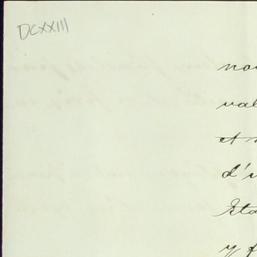 DCXXIII
nou
val
et
d'u
Eta
y f